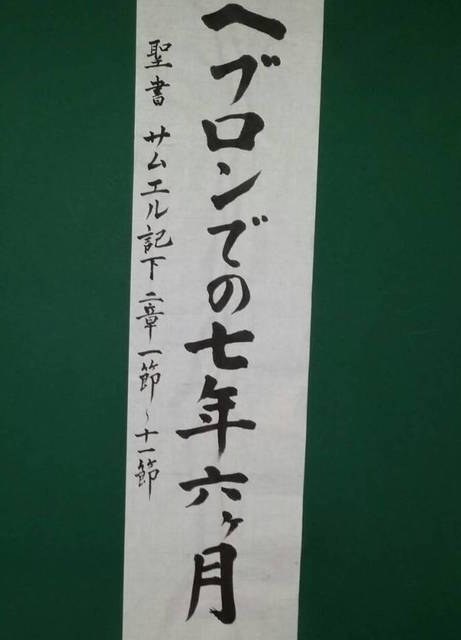 ヘブロンでの七年六ヶ月
聖書 サムエル記下二章一節~十一節